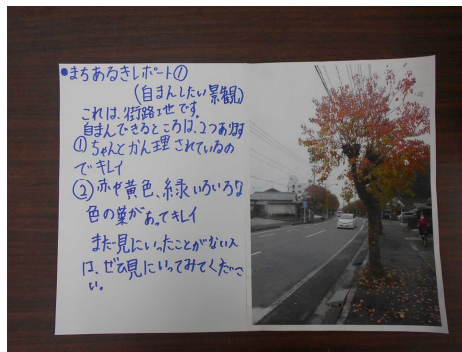 ●まちあるきレポート①
(自まんしたい景観)
これは、街路樹です。
自まんできるところは、2つあります
①ちゃんとかん理されているの
でキレイ
②赤や黄色、緑いろいろな
色の葉があってキレイ
まだ見にいったことがない人
は、ぜひ見にいってみてくださ
い。